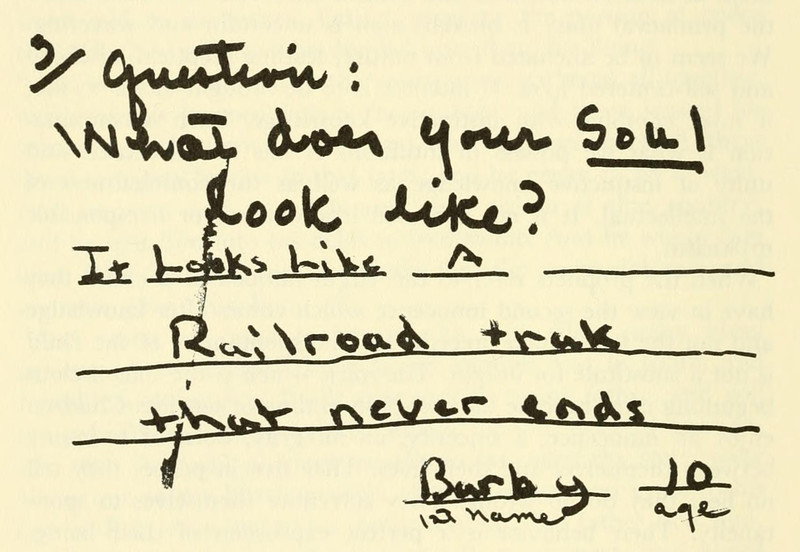 3/ Question:
What does your Soul
Look Like?
It Looks Like A
Railroad trak
that never ends
Burby 10
1st Name age